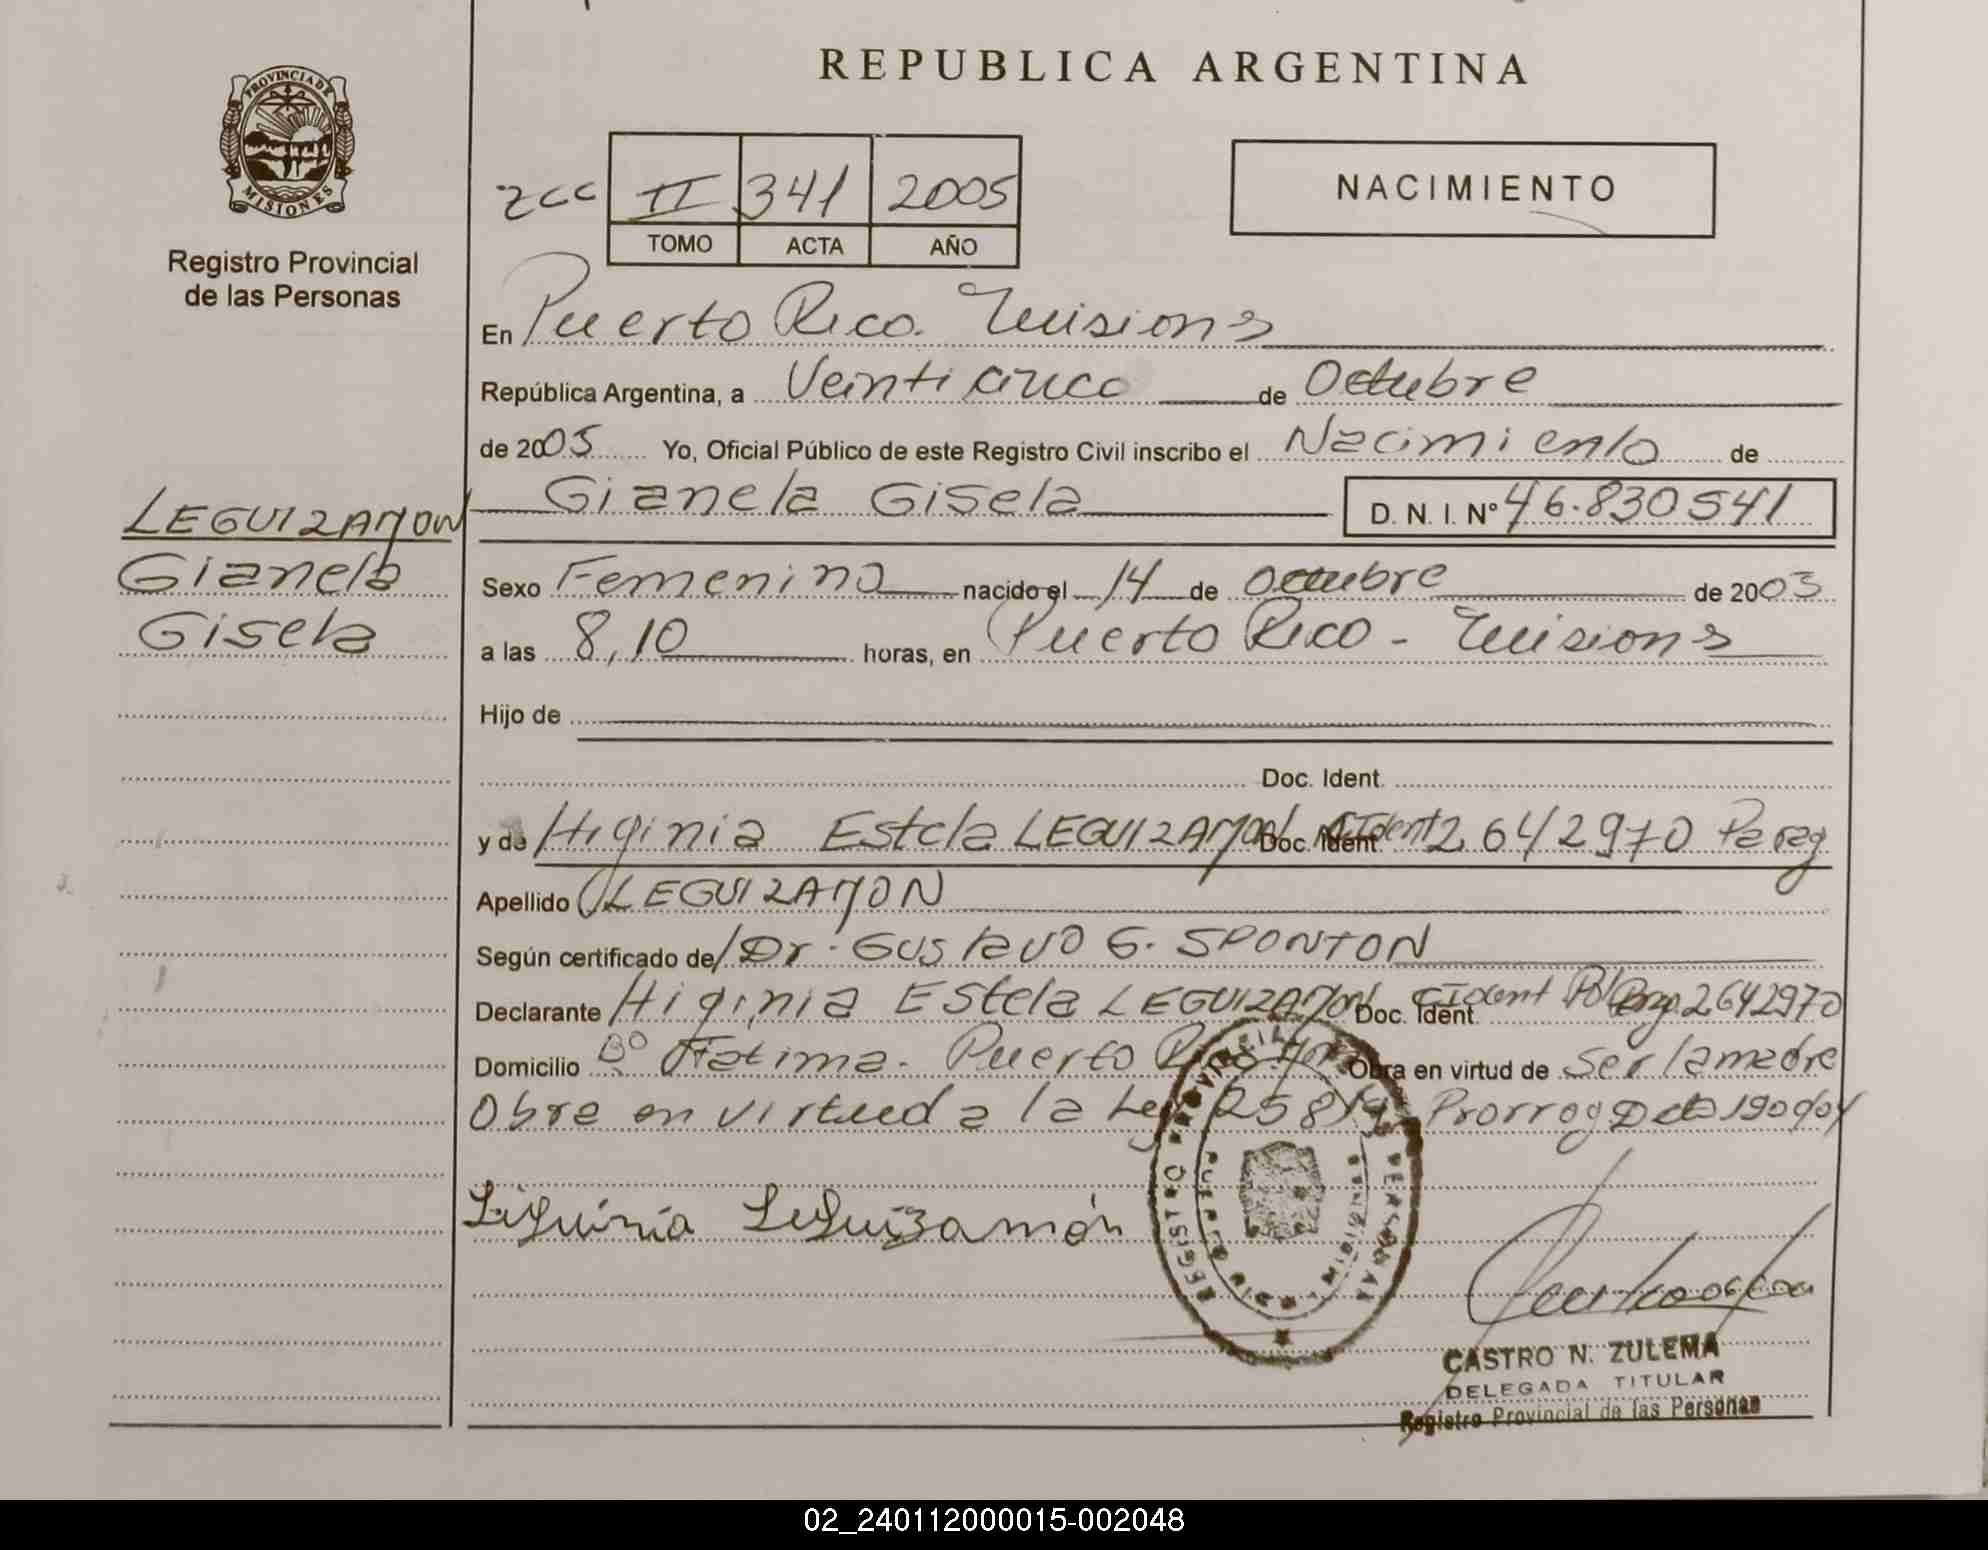 REPUBLICA ARGENTINA
PROVINCIA DE MISIONES
Registro Provincial
de las Personas
zcc II 341 2005
TOMO ACTA AÑO
NACIMIENTO
En Puerto Rico. Misiones
República Argentina, a Veinticinco de Octubre
de 2005 Yo, Oficial Público de este Registro Civil inscribo el Nacimiento de
Gianela Gisela D. N. I. Nº 46.830541
LEGUIZAMON
Gianela
Gisela
Sexo Femenino nacido el 14 de Octubre de 2003
a las 8,10 horas, en Puerto Rico - Misiones
Hijo de
Doc. Ident.
y de Higinia Estela LEGUIZAMON Doc. Ident CIdent 2642970 Parag
Apellido LEGUIZAMON
Según certificado de Dr. GUSTAVO G. SPONTON
Declarante Higinia Estela LEGUIZAMON Doc. Ident CIdent Pol 2642970
Domicilio Bº Fatima - Puerto Rico Obra en virtud de Ser la madre
Obra en virtud a la Ley 25819 Prorrog Dcto 190904
Higuinia Leguizamón
REGISTRO PROVINCIAL PERSONAS
PUERTO RICO MISIONES
CASTRO N. ZULEMA
DELEGADA TITULAR
Registro Provincial de las Personas
02_240112000015-002048